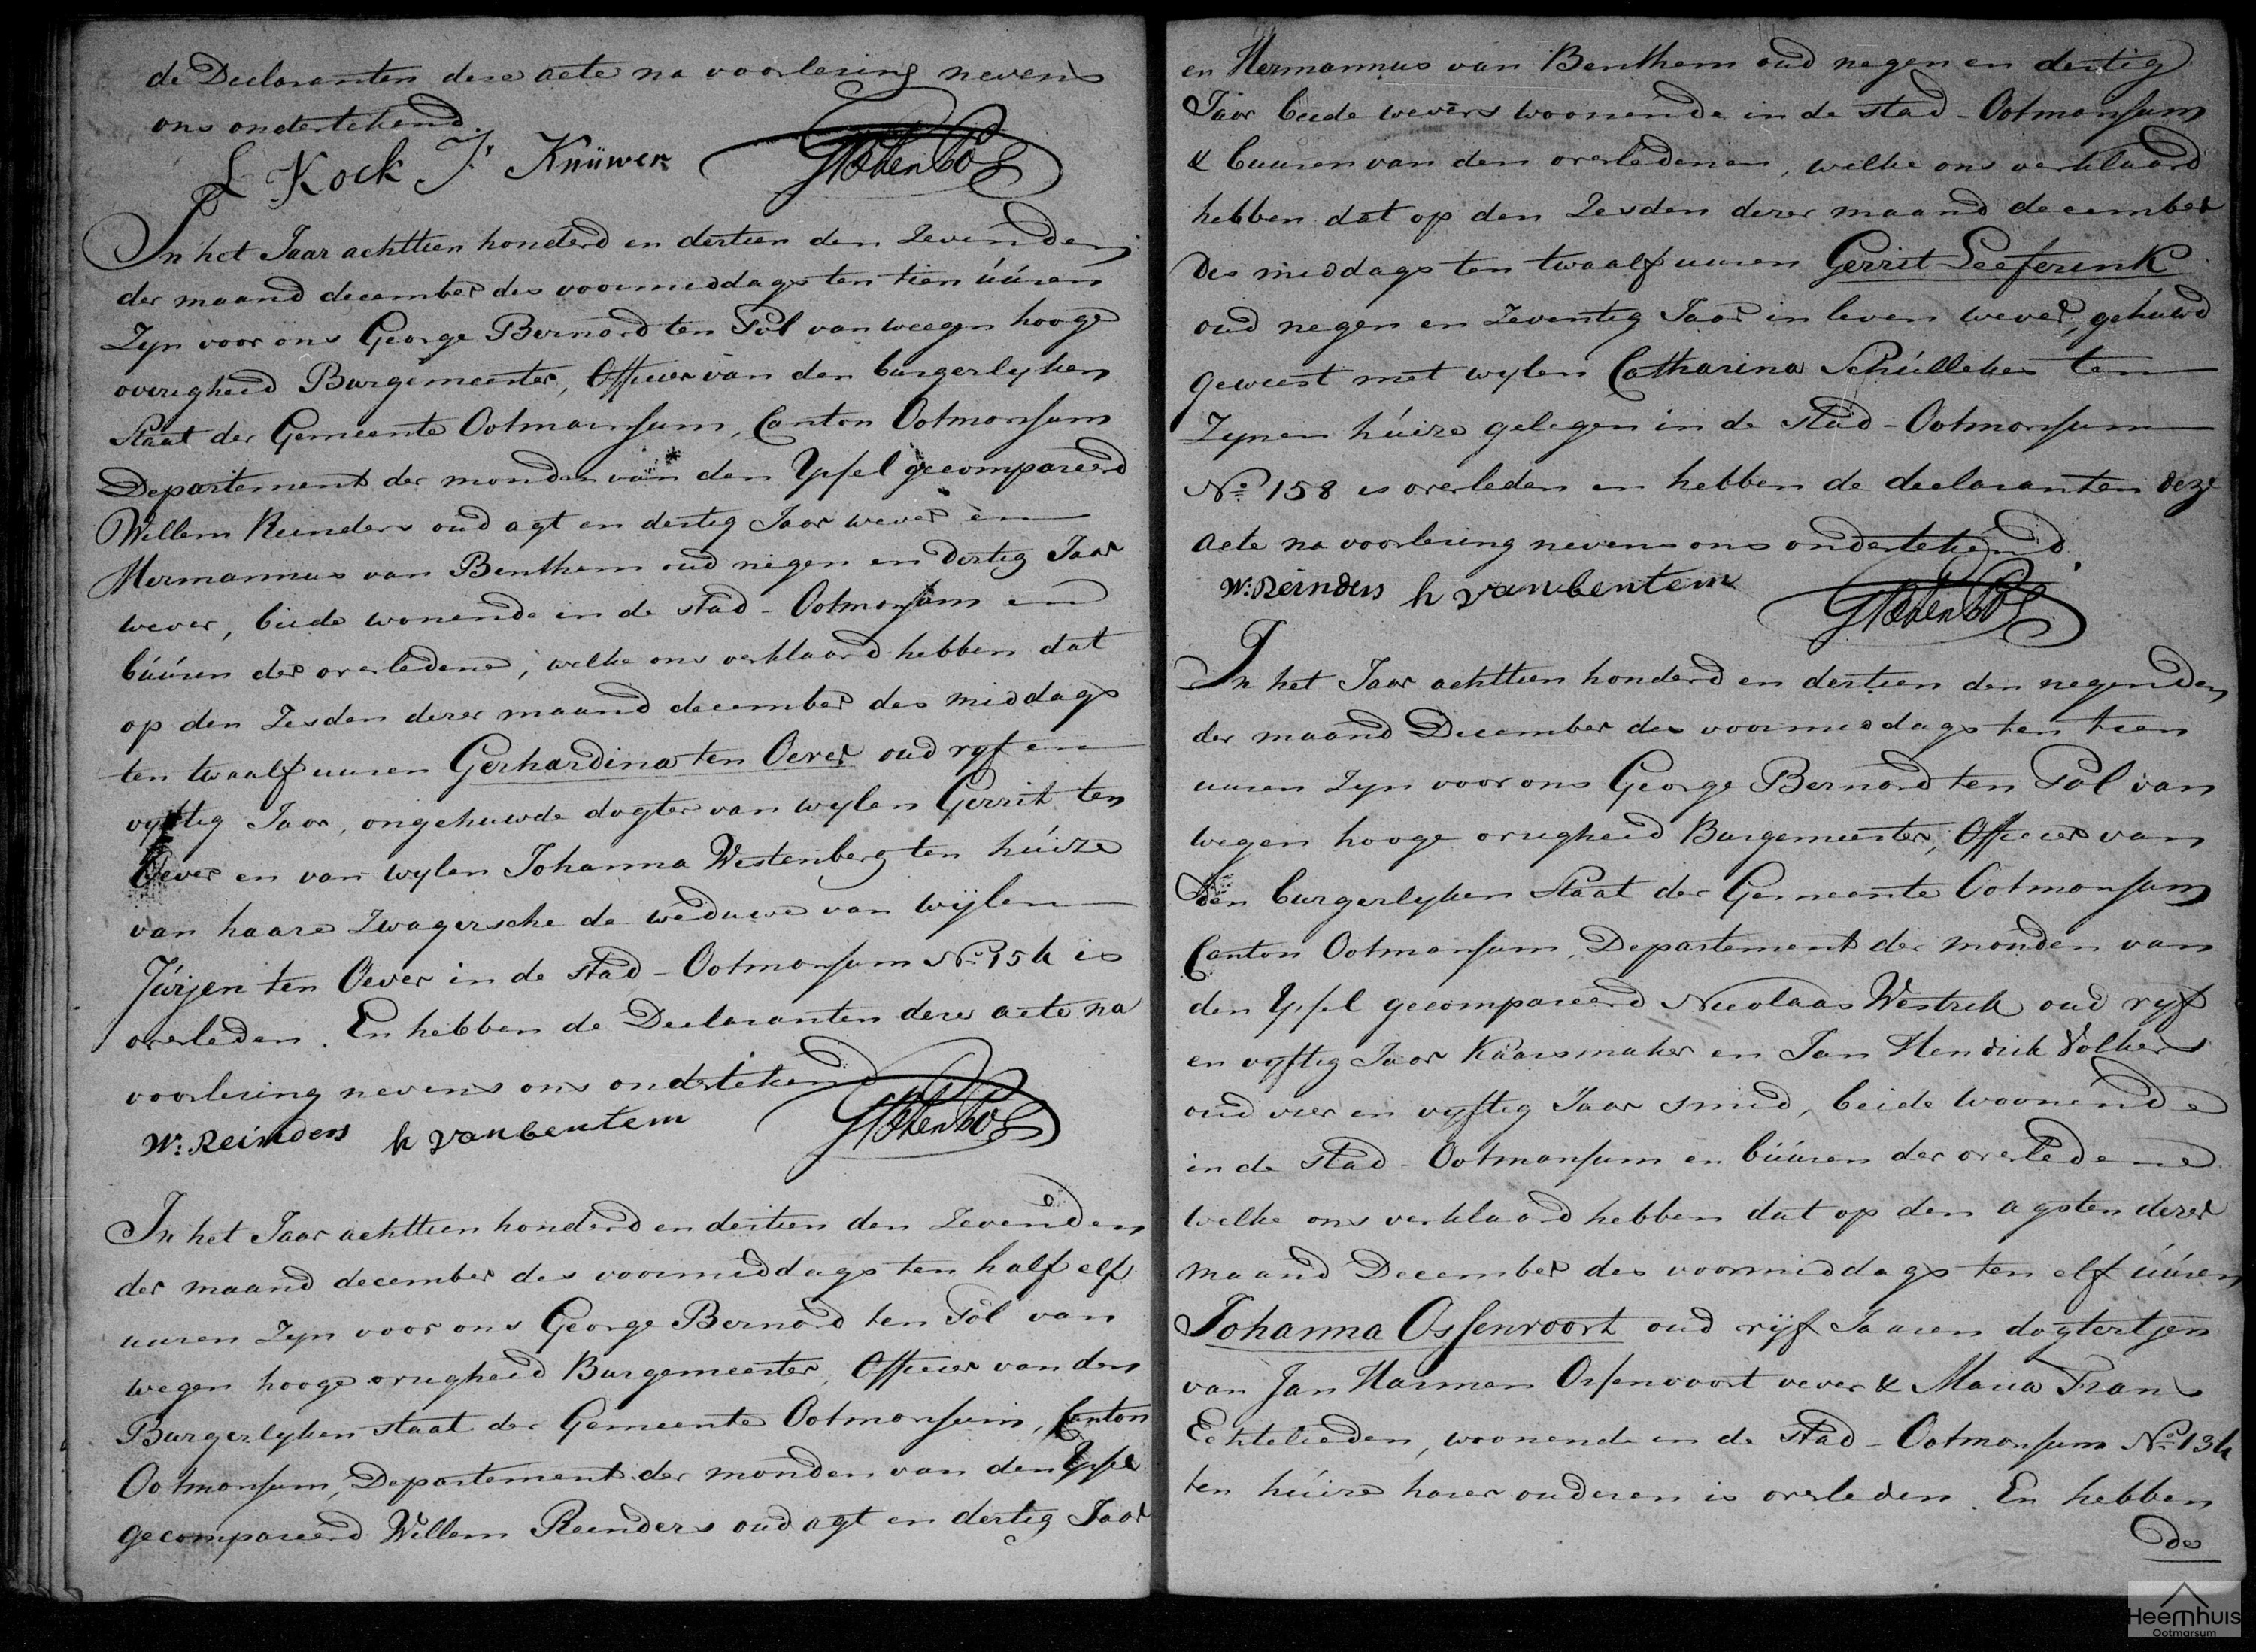 de Declaranten deze acte na voorlezing nevens
ons ondertekend.
L Kock J Knüwer GB ten Pol
In het Jaar achttien honderd en dertien den Zevenden
der maand december des voormiddags ten tien úúren
Zyn voor ons George Bernard ten Pol van weegen hooge
overigheid Burgemeester, Officier van den burgerlyken
Staat der Gemeente Ootmarssum, Canton Ootmarssum
Departement der monden van den Yssel gecompareerd
Willem Reinders oud agt en dertig Jaar wever en
Hermannus van Benthem oud negen en dertig Jaar
wever, beide wonende in de stad Ootmarssum en
búúren der overledene, welke ons verklaard hebben dat
op den Zesden dezer maand december des middags
ten twaalf uuren Gerhardina ten Oever oud vyf en
vyftig Jaar, ongehuwde dogter van wylen Gerrit ten
Oever en van wylen Johanna Westenberg ten húize
van haare Zwagersche de weduwe van wijlen
Júrjen ten Oever in de stad Ootmarssum No 154 is
overleden. En hebben de Declaranten deze acte na
voorlezing nevens ons ondertekend
W: Reinders h van bentem GB ten Pol
In het Jaar achttien honderd en dertien den Zevenden
der maand december des voormiddags ten half elf
uuren Zyn voor ons George Bernard ten Pol van
wegen hooge overigheid Burgemeester, Officier van den
Burgerlyken staat der Gemeente Ootmarssum, Canton
Ootmarssum, Departement der monden van den Yssel
gecompareerd Willem Reinders oud agt en dertig Jaar
en Hermannus van Benthem oud negen en dertig
Jaar beide wevers woonende in de stad Ootmarssum
& buuren van den overledenen, welke ons verklaard
hebben dat op den Zesden dezer maand december
des middags ten twaalf uuren Gerrit Leeferink
oud negen en Zeventig Jaar in leven wever, gehuwd
geweest met wylen Catharina Schúlleken ten
Zynen húize gelegen in de stad Ootmarssum
No 158 is overleden en hebben de declaranten deze
acte na voorlezing nevens ons ondertekend
W: Reinders h van bentem GB ten Pol
In het Jaar achttien honderd en dertien den negenden
der maand December des voormiddags ten tien
uuren Zyn voor ons George Bernard ten Pol van
wegen hooge overigheid Burgemeester, Officier van
den burgerlyken Staat der Gemeente Ootmarssum
Canton Ootmarssum, Departement der monden van
den Yssel gecompareerd Nicolaas Westrik oud vyf
en vyftig Jaar Kaarsmaker en Jan Hendrik Volkers
oud vier en vyftig Jaar smid, beide woonende
in de stad Ootmarssum en búúren der overledene
welke ons verklaard hebben dat op den agsten dezer
maand December des voormiddags ten elf úúren
Johanna Ossenvoort oud vijf Jaaren dogtertjen
van Jan Harmen Ossenvoort wever & Maria Frans
Echtelieden, woonende in de stad Ootmarssum No 134
ten húize harer ouderen is overleden. En hebben
de
Heemhuis
Ootmarsum